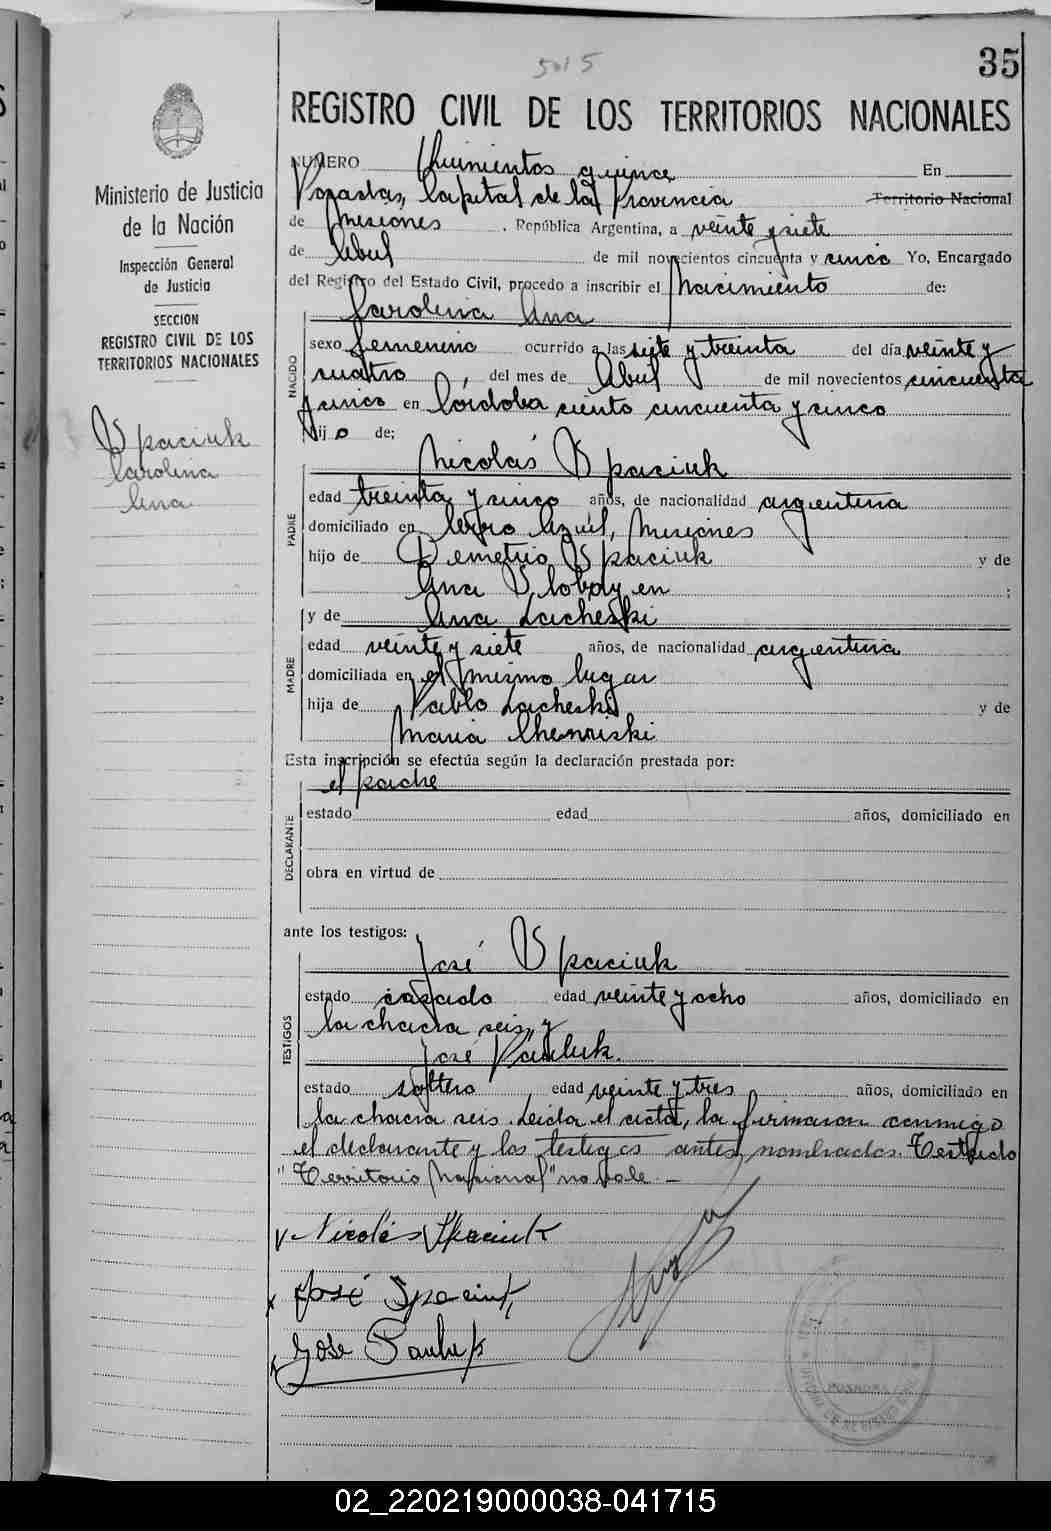 35
5015
REGISTRO CIVIL DE LOS TERRITORIOS NACIONALES
Ministerio de Justicia
de la Nación
Inspección General
de Justicia
SECCION
REGISTRO CIVIL DE LOS
TERRITORIOS NACIONALES
Spaciuk
Carolina
Ana
NUMERO Quinientos quince En
Posadas, Capital de la Provincia Territorio Nacional
de Misiones, República Argentina, a veinte y siete
de Abril de mil novecientos cincuenta y cinco Yo, Encargado
del Registro del Estado Civil, procedo a inscribir el Nacimiento de:
Carolina Ana
NACIDO
sexo femenino ocurrido a las siete y treinta del día veinte y
cuatro, del mes de Abril de mil novecientos cincuenta
y cinco en Córdoba ciento cincuenta y cinco
hijo de:
Nicolás Spaciuk
PADRE
edad treinta y cinco años, de nacionalidad argentina
domiciliado en Cerro Azul, Misiones
hijo de Demetrio Spaciuk y de
Ana ;
y de Ana Lacheski
MADRE
edad veinte y siete años, de nacionalidad argentina
domiciliada en el mismo lugar
hija de Pablo Lacheski y de
Maria
Esta inscripción se efectúa según la declaración prestada por:
el padre
DECLARANTE
estado edad años, domiciliado en
obra en virtud de
ante los testigos:
José Spaciuk
TESTIGOS
estado casado edad veinte y ocho años, domiciliado en
la chacra seis y
José Pauluk.
estado soltero edad veinte y tres años, domiciliado en
la chacra seis. Leida el acta, la firmaron conmigo
el declarante y los testigos antes nombrados. Testado
"Territorio Nacional" no vale.-
Nicolás Spaciuk
José Spaciuk
José Pauluk
POSADAS
02_220219000038-041715